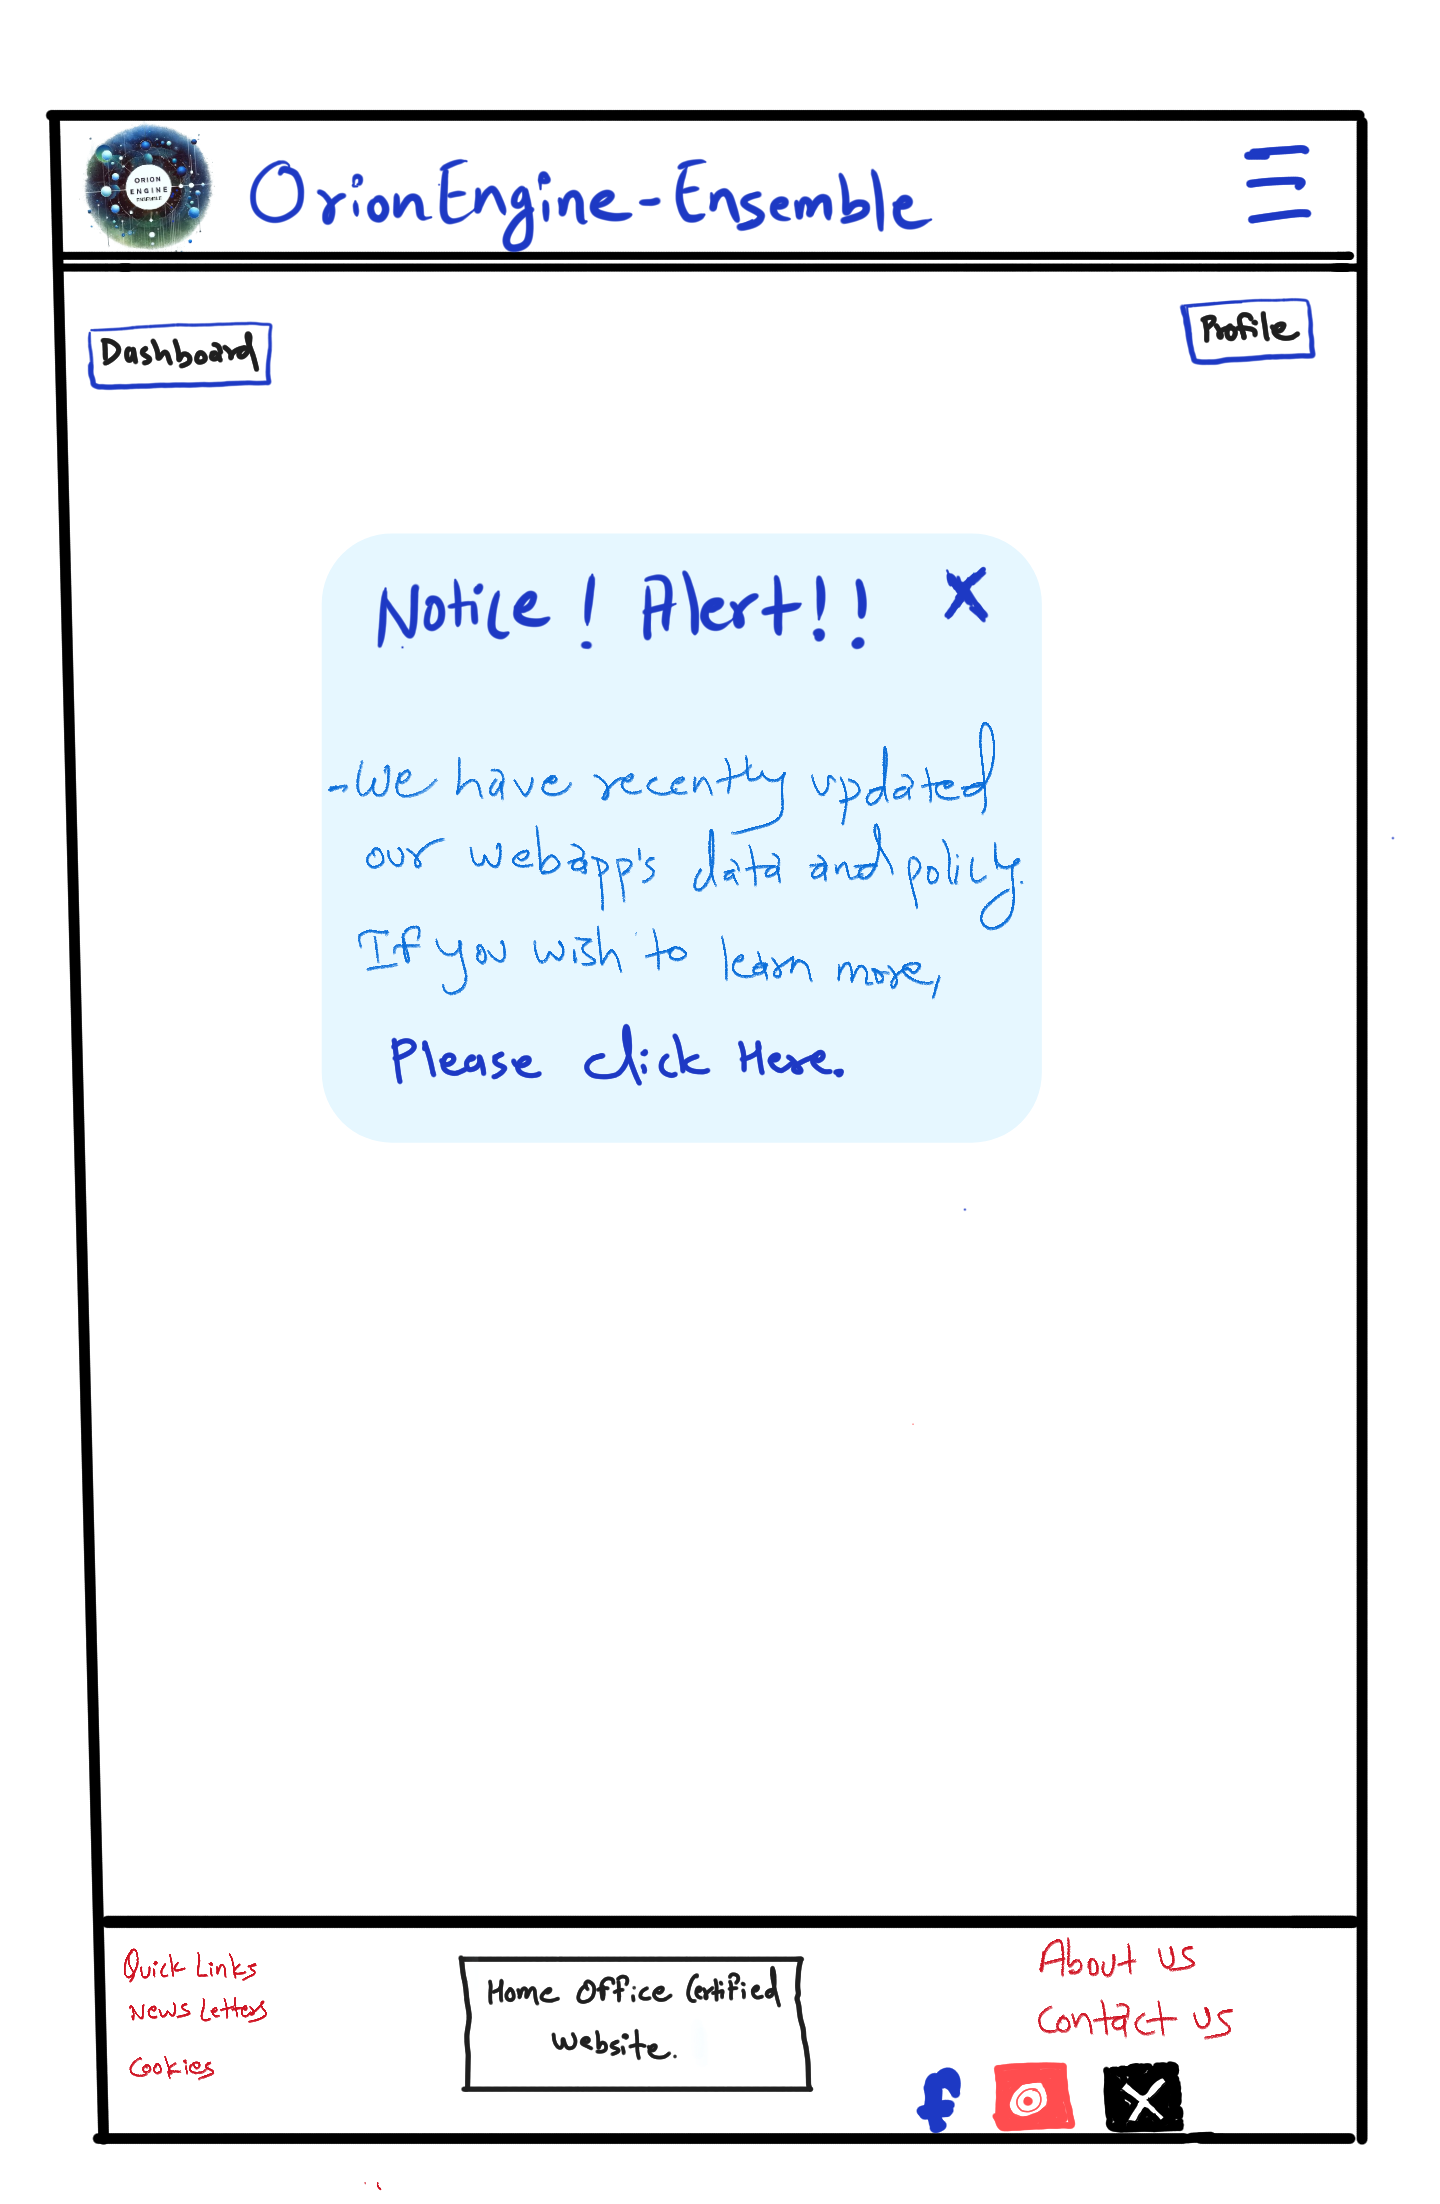 ORION
ENGINE
ENSEMBLE
OrionEngine-Ensemble
Dashboard
Profile
Notice! Alert!! X
-We have recently updated
our webapp's data and policy.
If you wish to learn more,
Please click Here.
Quick Links
News Letters
Cookies
Home Office Certified
Website.
About us
Contact us
f
X